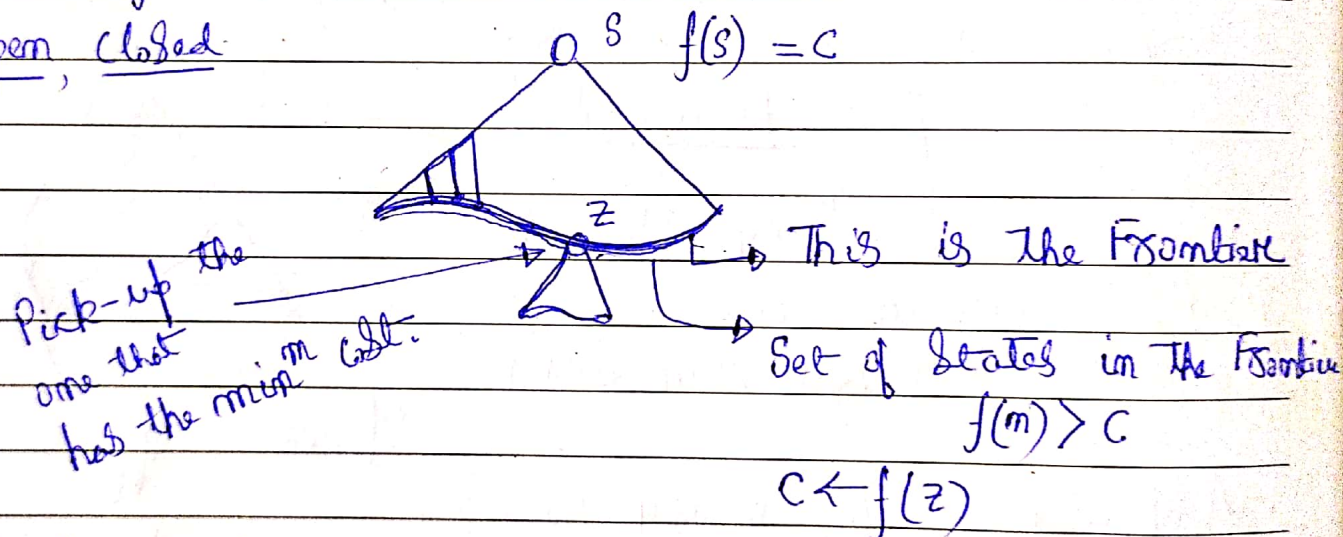 pen, closed
S f(s) = C
Z
This is the Frontier
Pick-up the
one that
has the minᵐ cost.
Set of States in The Frontier
f(m) > C
C ← f(z)